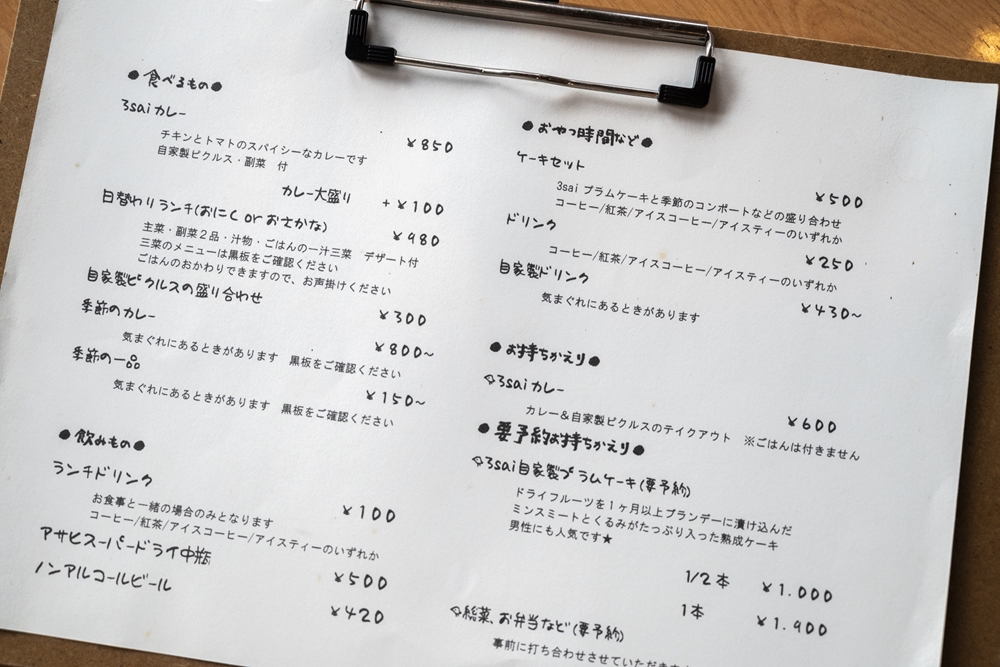 ●食べるもの●
3saiカレー
¥850
チキンとトマトのスパイシーなカレーです
自家製ピクルス・副菜 付
カレー大盛り +¥100
日替わりランチ(おにく or おさかな)
¥980
主菜・副菜2品・汁物・ごはんの一汁三菜 デザート付
三菜のメニューは黒板をご確認ください
ごはんのおかわりできますので、お声掛けください
自家製ピクルスの盛り合わせ
¥300
季節のカレー
¥800~
気まぐれにあるときがあります 黒板をご確認ください
季節の一品
¥150~
気まぐれにあるときがあります 黒板をご確認ください
●飲みもの●
ランチドリンク
¥100
お食事と一緒の場合のみとなります
コーヒー/紅茶/アイスコーヒー/アイスティーのいずれか
アサヒスーパードライ中瓶
¥500
ノンアルコールビール
¥420
●おやつ時間など●
ケーキセット
¥500
3sai プラムケーキと季節のコンポートなどの盛り合わせ
コーヒー/紅茶/アイスコーヒー/アイスティーのいずれか
ドリンク
¥250
コーヒー/紅茶/アイスコーヒー/アイスティーのいずれか
自家製ドリンク
¥430~
気まぐれにあるときがあります
●お持ちかえり●
3saiカレー
¥600
カレー&自家製ピクルスのテイクアウト ※ごはんは付きません
●要予約お持ちかえり●
3sai自家製プラムケーキ(要予約)
ドライフルーツを1ヶ月以上ブランデーに漬け込んだ
ミンスミートとくるみがたっぷり入った熟成ケーキ
男性にも人気です★
1/2本 ¥1.000
1本 ¥1.900
総菜、お弁当など(要予約)
事前に打ち合わせさせていただきます